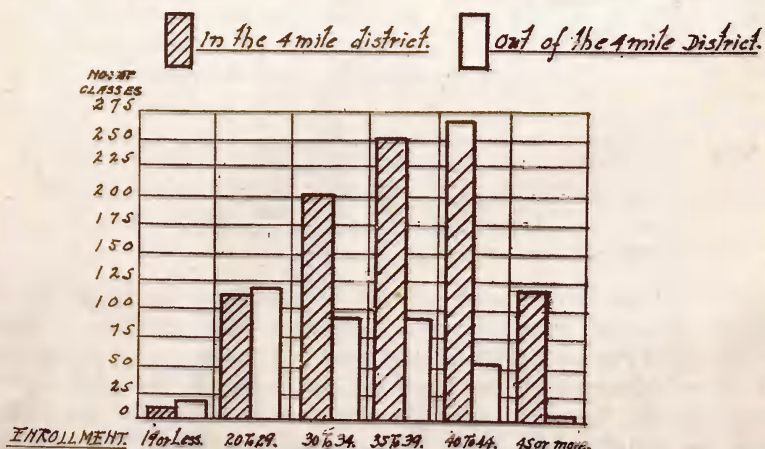 In the 4 mile district.
Out of the 4 mile District.
NO. OF
CLASSES
275
250
225
200
175
150
125
100
75
50
25
0
ENROLLMENT. 19 or Less. 20 To 29. 30 To 34. 35 To 39. 40 To 44. 45 or more.